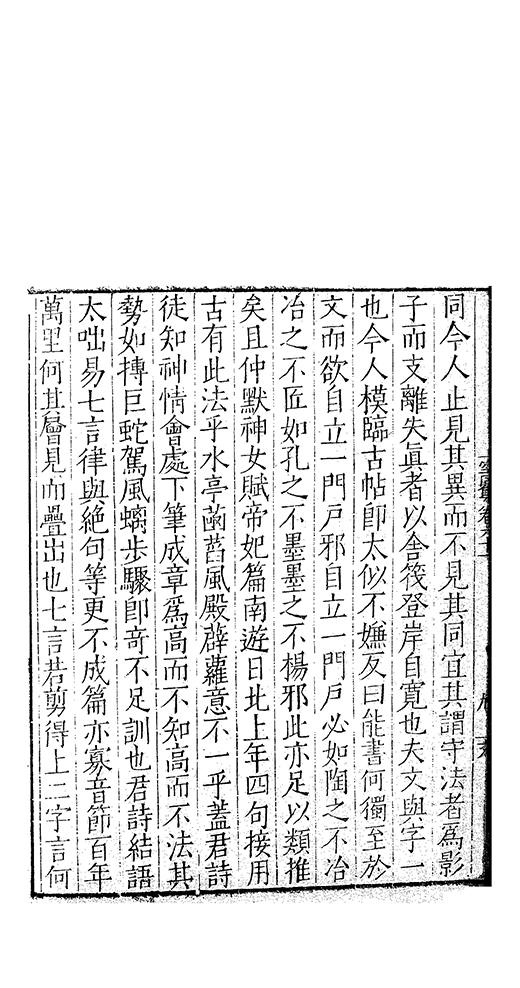 同今人止見其異而不見其同宜其謂守法者爲影
子而支離失眞者以舍筏登岸自寛也夫文與字一
也今人模臨古帖卽太似不嫌反曰能書何獨至於
文而欲自立一門戶邪自立一門戶必如陶之不冶
冶之不匠如孔之不墨墨之不楊邪此亦足以類推
矣且仲默神女賦帝妃篇南遊日北上年四句接用
古有此法乎水亭菡萏風殿薜蘿意不一乎蓋君詩
徒知神情會處下筆成章爲高而不知高而不法其
勢如摶巨蛇駕風螭步驟卽奇不足訓也君詩結語
太咄易七言律與絶句等更不成篇亦寡音節百年
萬里何其層見而疊出也七言若剪得上二字言何